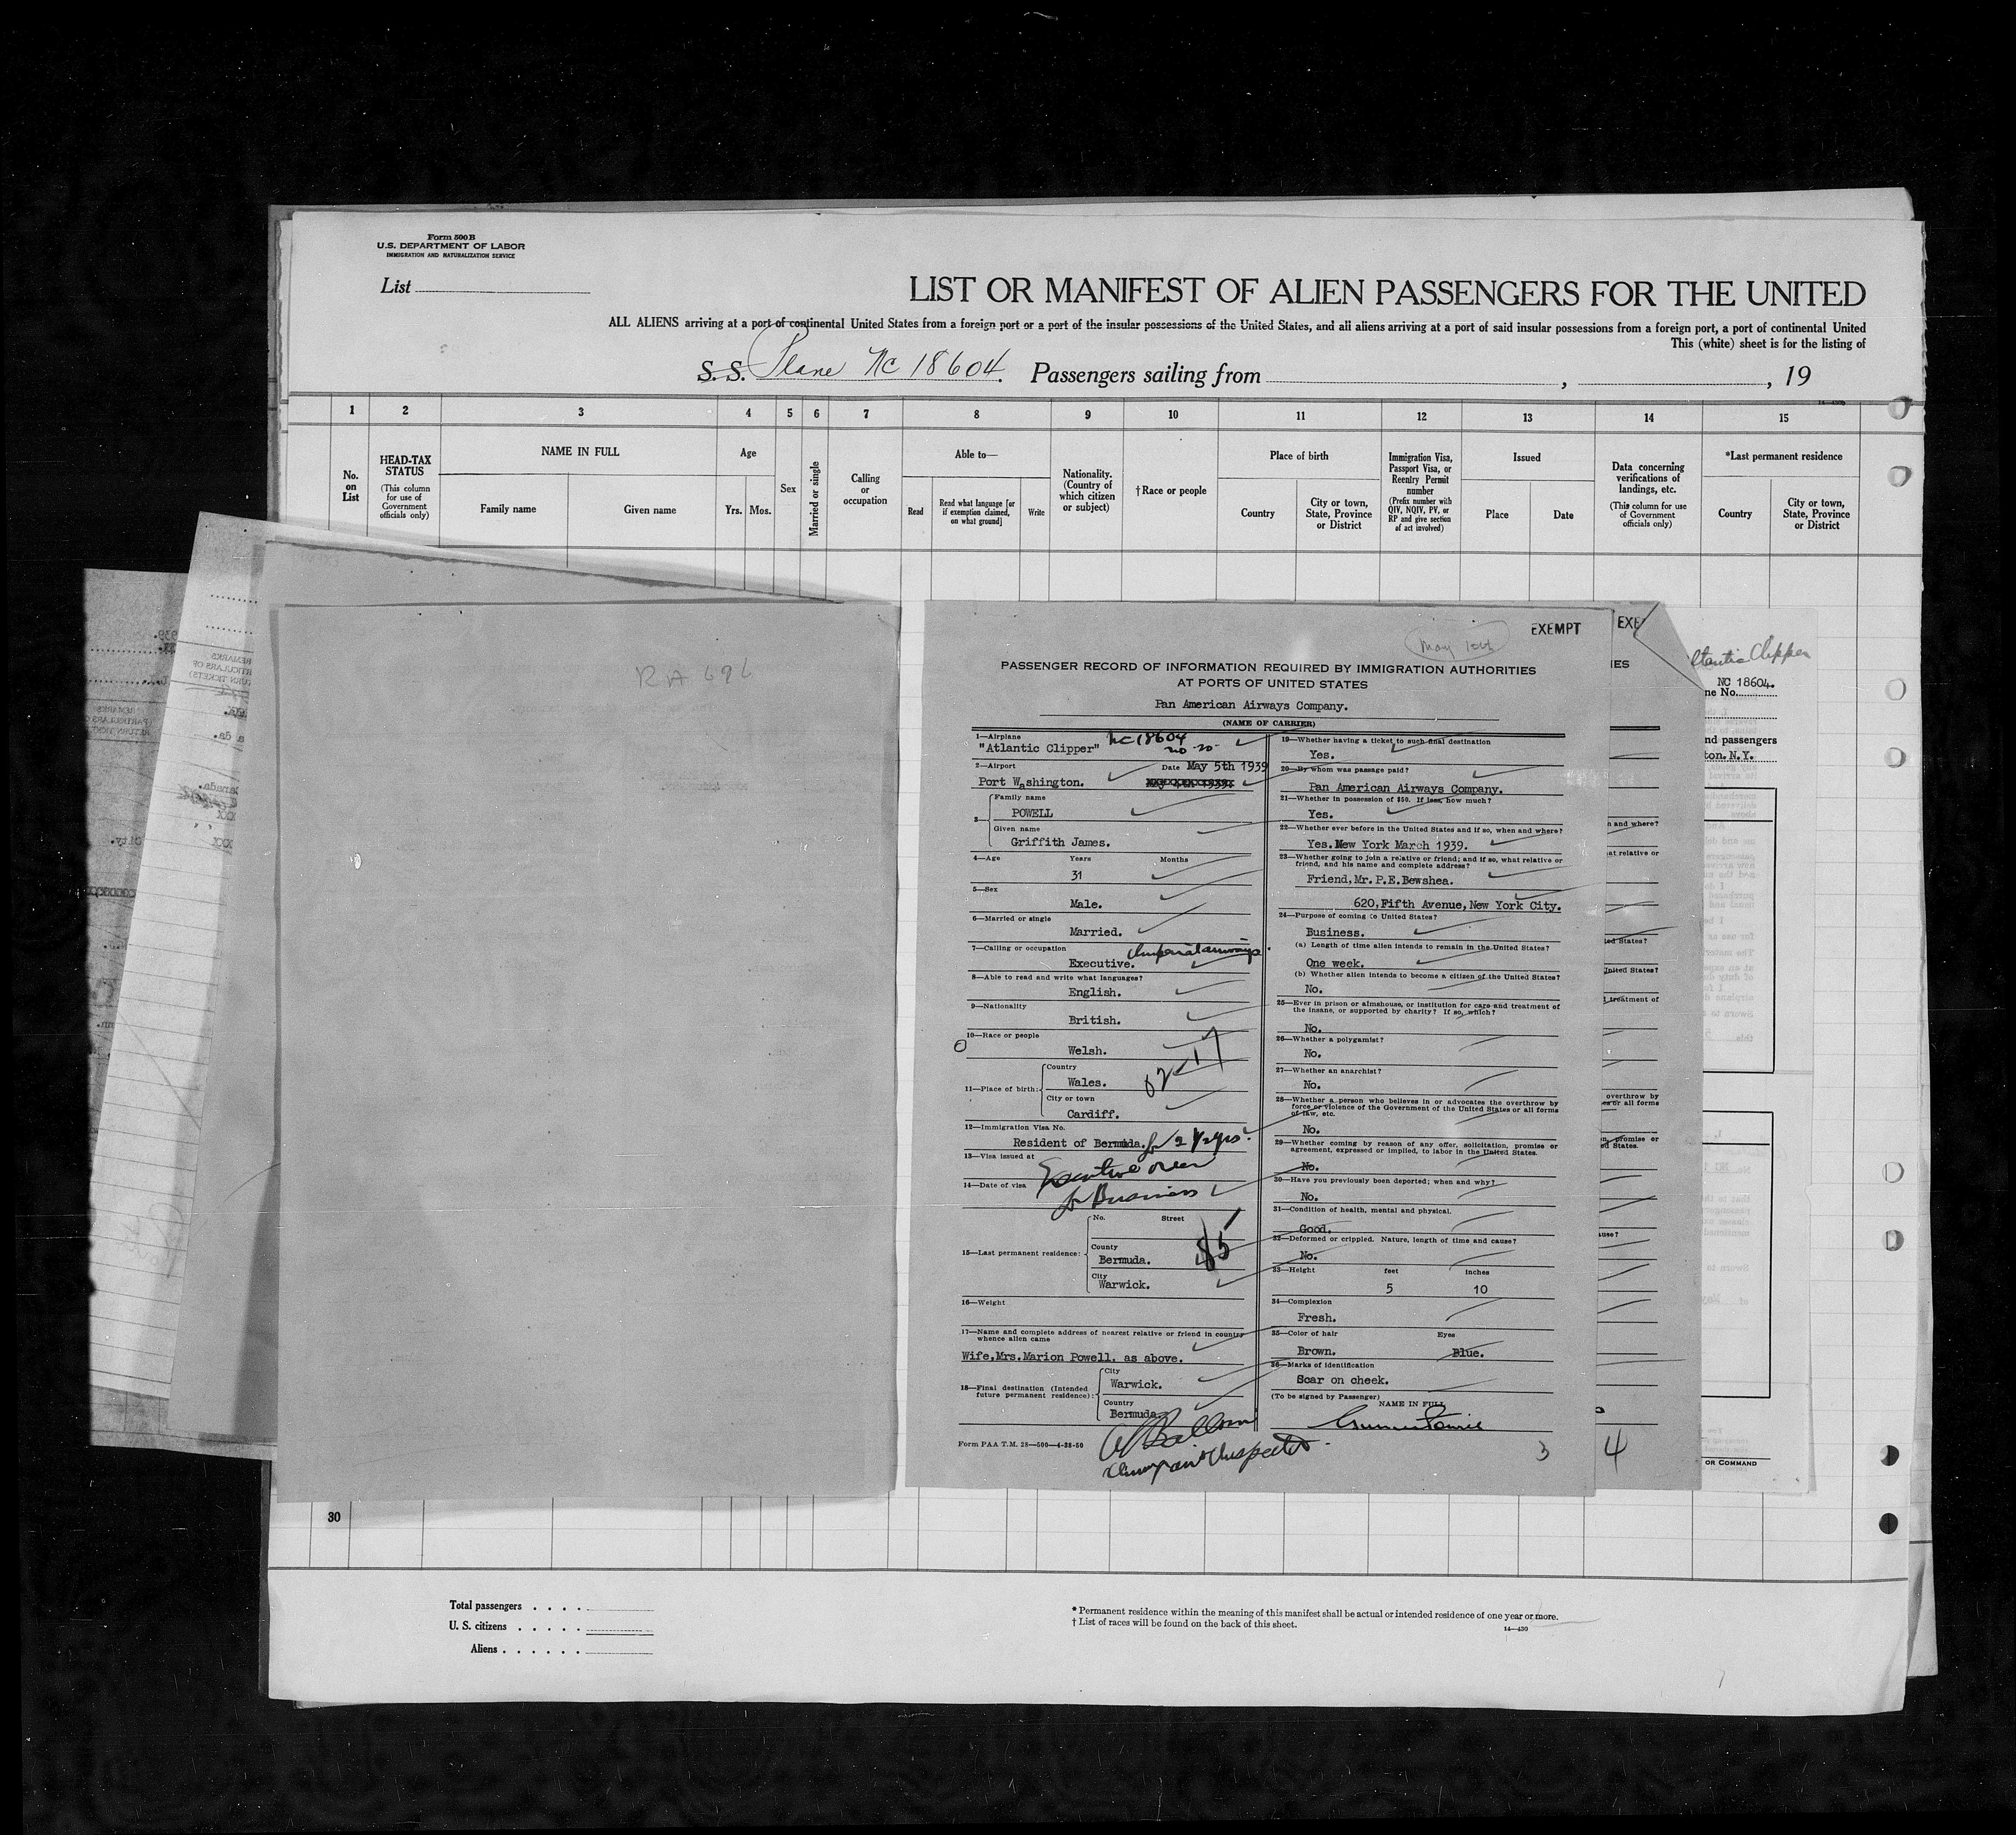 Form 500B
U.S. DEPARTMENT OF LABOR
IMMIGRATION AND NATURALIZATION SERVICE
List
LIST OR MANIFEST OF ALIEN PASSENGERS FOR THE UNITED
ALL ALIENS arriving at a port of continental United States from a foreign port or a port of the insular possessions of the United States, and all aliens arriving at a port of said insular possessions from a foreign port, a port of continental United
This (white) sheet is for the listing of
S. S. Plane NC 18604. Passengers sailing from , , 19
1 2 3 4 5 6 7 8 9 10 11 12 13 14 15
No. on List
HEAD-TAX STATUS
(This column for use of Government officials only)
NAME IN FULL
Family name
Given name
Age
Yrs. Mos.
Sex
Married or single
Calling or occupation
Able to—
Read
Read what language [or if exemption claimed, on what ground]
Write
Nationality. (Country of which citizen or subject)
†Race or people
Place of birth
Country
City or town, State, Province or District
Immigration Visa, Passport Visa, or Reentry Permit number
(Prefix number with QIV, NQIV, PV, or RP and give section of act involved)
Issued
Place
Date
Data concerning verifications of landings, etc.
(This column for use of Government officials only)
*Last permanent residence
Country
City or town, State, Province or District
May 10th
EXEMPT
PASSENGER RECORD OF INFORMATION REQUIRED BY IMMIGRATION AUTHORITIES
AT PORTS OF UNITED STATES
Pan American Airways Company.
(NAME OF CARRIER)
1—Airplane
"Atlantic Clipper" NC 18604
2—Airport Date May 5th 1939
Port Washington.
3—
Family name
POWELL
Given name
Griffith James.
4—Age Years Months
31
5—Sex
Male.
6—Married or single
Married.
7—Calling or occupation
Executive. Imperial airways
8—Able to read and write what languages?
English.
9—Nationality
British.
10—Race or people
Welsh.
11—Place of birth:
Country
Wales.
City or town
Cardiff.
12—Immigration Visa No.
Resident of Bermuda. for 2 1/2 yrs.
13—Visa issued at
14—Date of visa
for Business
15—Last permanent residence:
No. Street
County
Bermuda.
City
Warwick.
85
16—Weight
17—Name and complete address of nearest relative or friend in country
whence alien came
Wife,Mrs.Marion Powell. as above.
18—Final destination (Intended
future permanent residence):
City
Warwick.
Country
Bermuda.
Form PAA T.M. 28—500—4-38-50
19—Whether having a ticket to such final destination
Yes.
20—By whom was passage paid?
Pan American Airways Company.
21—Whether in possession of $50. If less, how much?
Yes.
22—Whether ever before in the United States and if so, when and where?
Yes. New York March 1939.
23—Whether going to join a relative or friend; and if so, what relative or
friend, and his name and complete address?
Friend,Mr.P.E.Bewshea.
620,Fifth Avenue,New York City.
24—Purpose of coming to United States?
Business.
(a) Length of time alien intends to remain in the United States?
One week.
(b) Whether alien intends to become a citizen of the United States?
No.
25—Ever in prison or almshouse, or institution for care and treatment of
the insane, or supported by charity? If so, which?
No.
26—Whether a polygamist?
No.
27—Whether an anarchist?
No.
28—Whether a person who believes in or advocates the overthrow by
force or violence of the Government of the United States or all forms
of law, etc.
No.
29—Whether coming by reason of any offer, solicitation, promise or
agreement, expressed or implied, to labor in the United States.
No.
30—Have you previously been deported; when and why?
No.
31—Condition of health, mental and physical.
Good.
32—Deformed or crippled. Nature, length of time and cause?
No.
33—Height feet inches
5 10
34—Complexion
Fresh.
35—Color of hair Eyes
Brown. Blue.
36—Marks of identification
Scar on cheek.
(To be signed by Passenger)
NAME IN FULL
3
4
Clipper
NC 18604.
nd passengers
ton. N.Y.
OR COMMAND
30
Total passengers
U. S. citizens
Aliens
* Permanent residence within the meaning of this manifest shall be actual or intended residence of one year or more.
† List of races will be found on the back of this sheet.
14—430